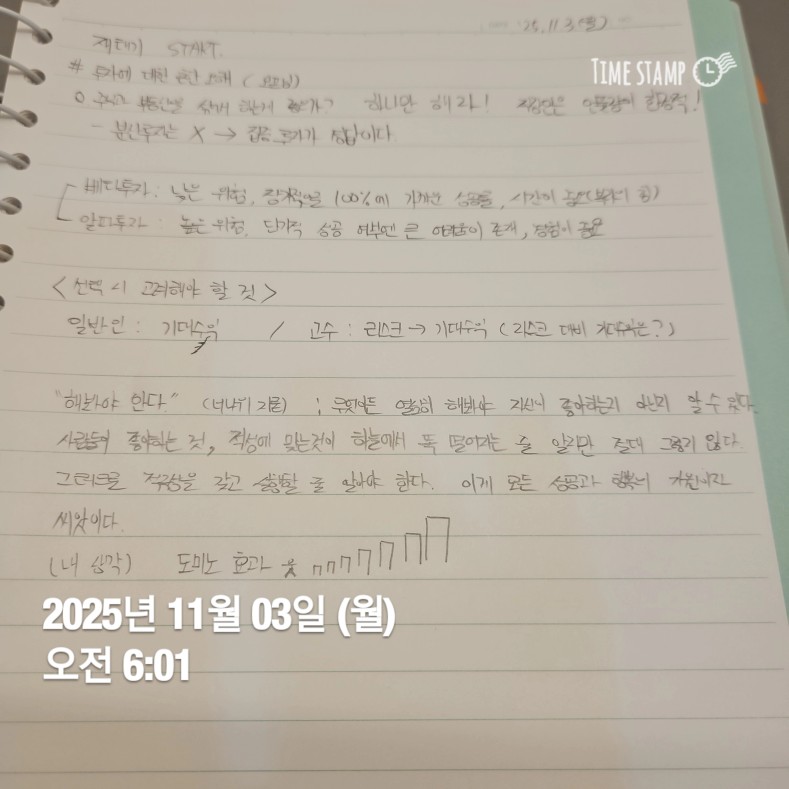 '25. 11. 3 (월)
TIME STAMP
재테기 START.
# 투자에 대한 흔한 오해
○ 주식과 부동산을 하나만 해라! 직장인은 한정적!
- 분산투자는 X → 집중 투자가 정답이다
베타투자 : 낮은 위험, 장기적으로 100%에 가까운 성공률, 시간이 중요(복리의 힘)
알파투자 : 높은 위험, 단기적 성공 여부엔 큰 어려움이 존재, 경험이 중요
<선택 시 고려해야 할 것>
일반인 : 기대수익 / 고수 : 리스크 → 기대수익 (리스크 대비 기대수익은?)
"해봐야 안다." (너나위 지음) ; 무엇이든 열심히 해봐야 자신이 좋아하는지 아닌지 알 수 있다.
사람들이 좋아하는 것, 적성에 맞는것이 하늘에서 뚝 떨어지는 줄 알지만 절대 그렇지 않다.
그러므로 적극성을 갖고 실행할 줄 알아야 한다. 이게 모든 성공과 행복이 가원이진
씨앗이다.
(내 생각) 도미노 효과
2025년 11월 03일 (월)
오전 6:01